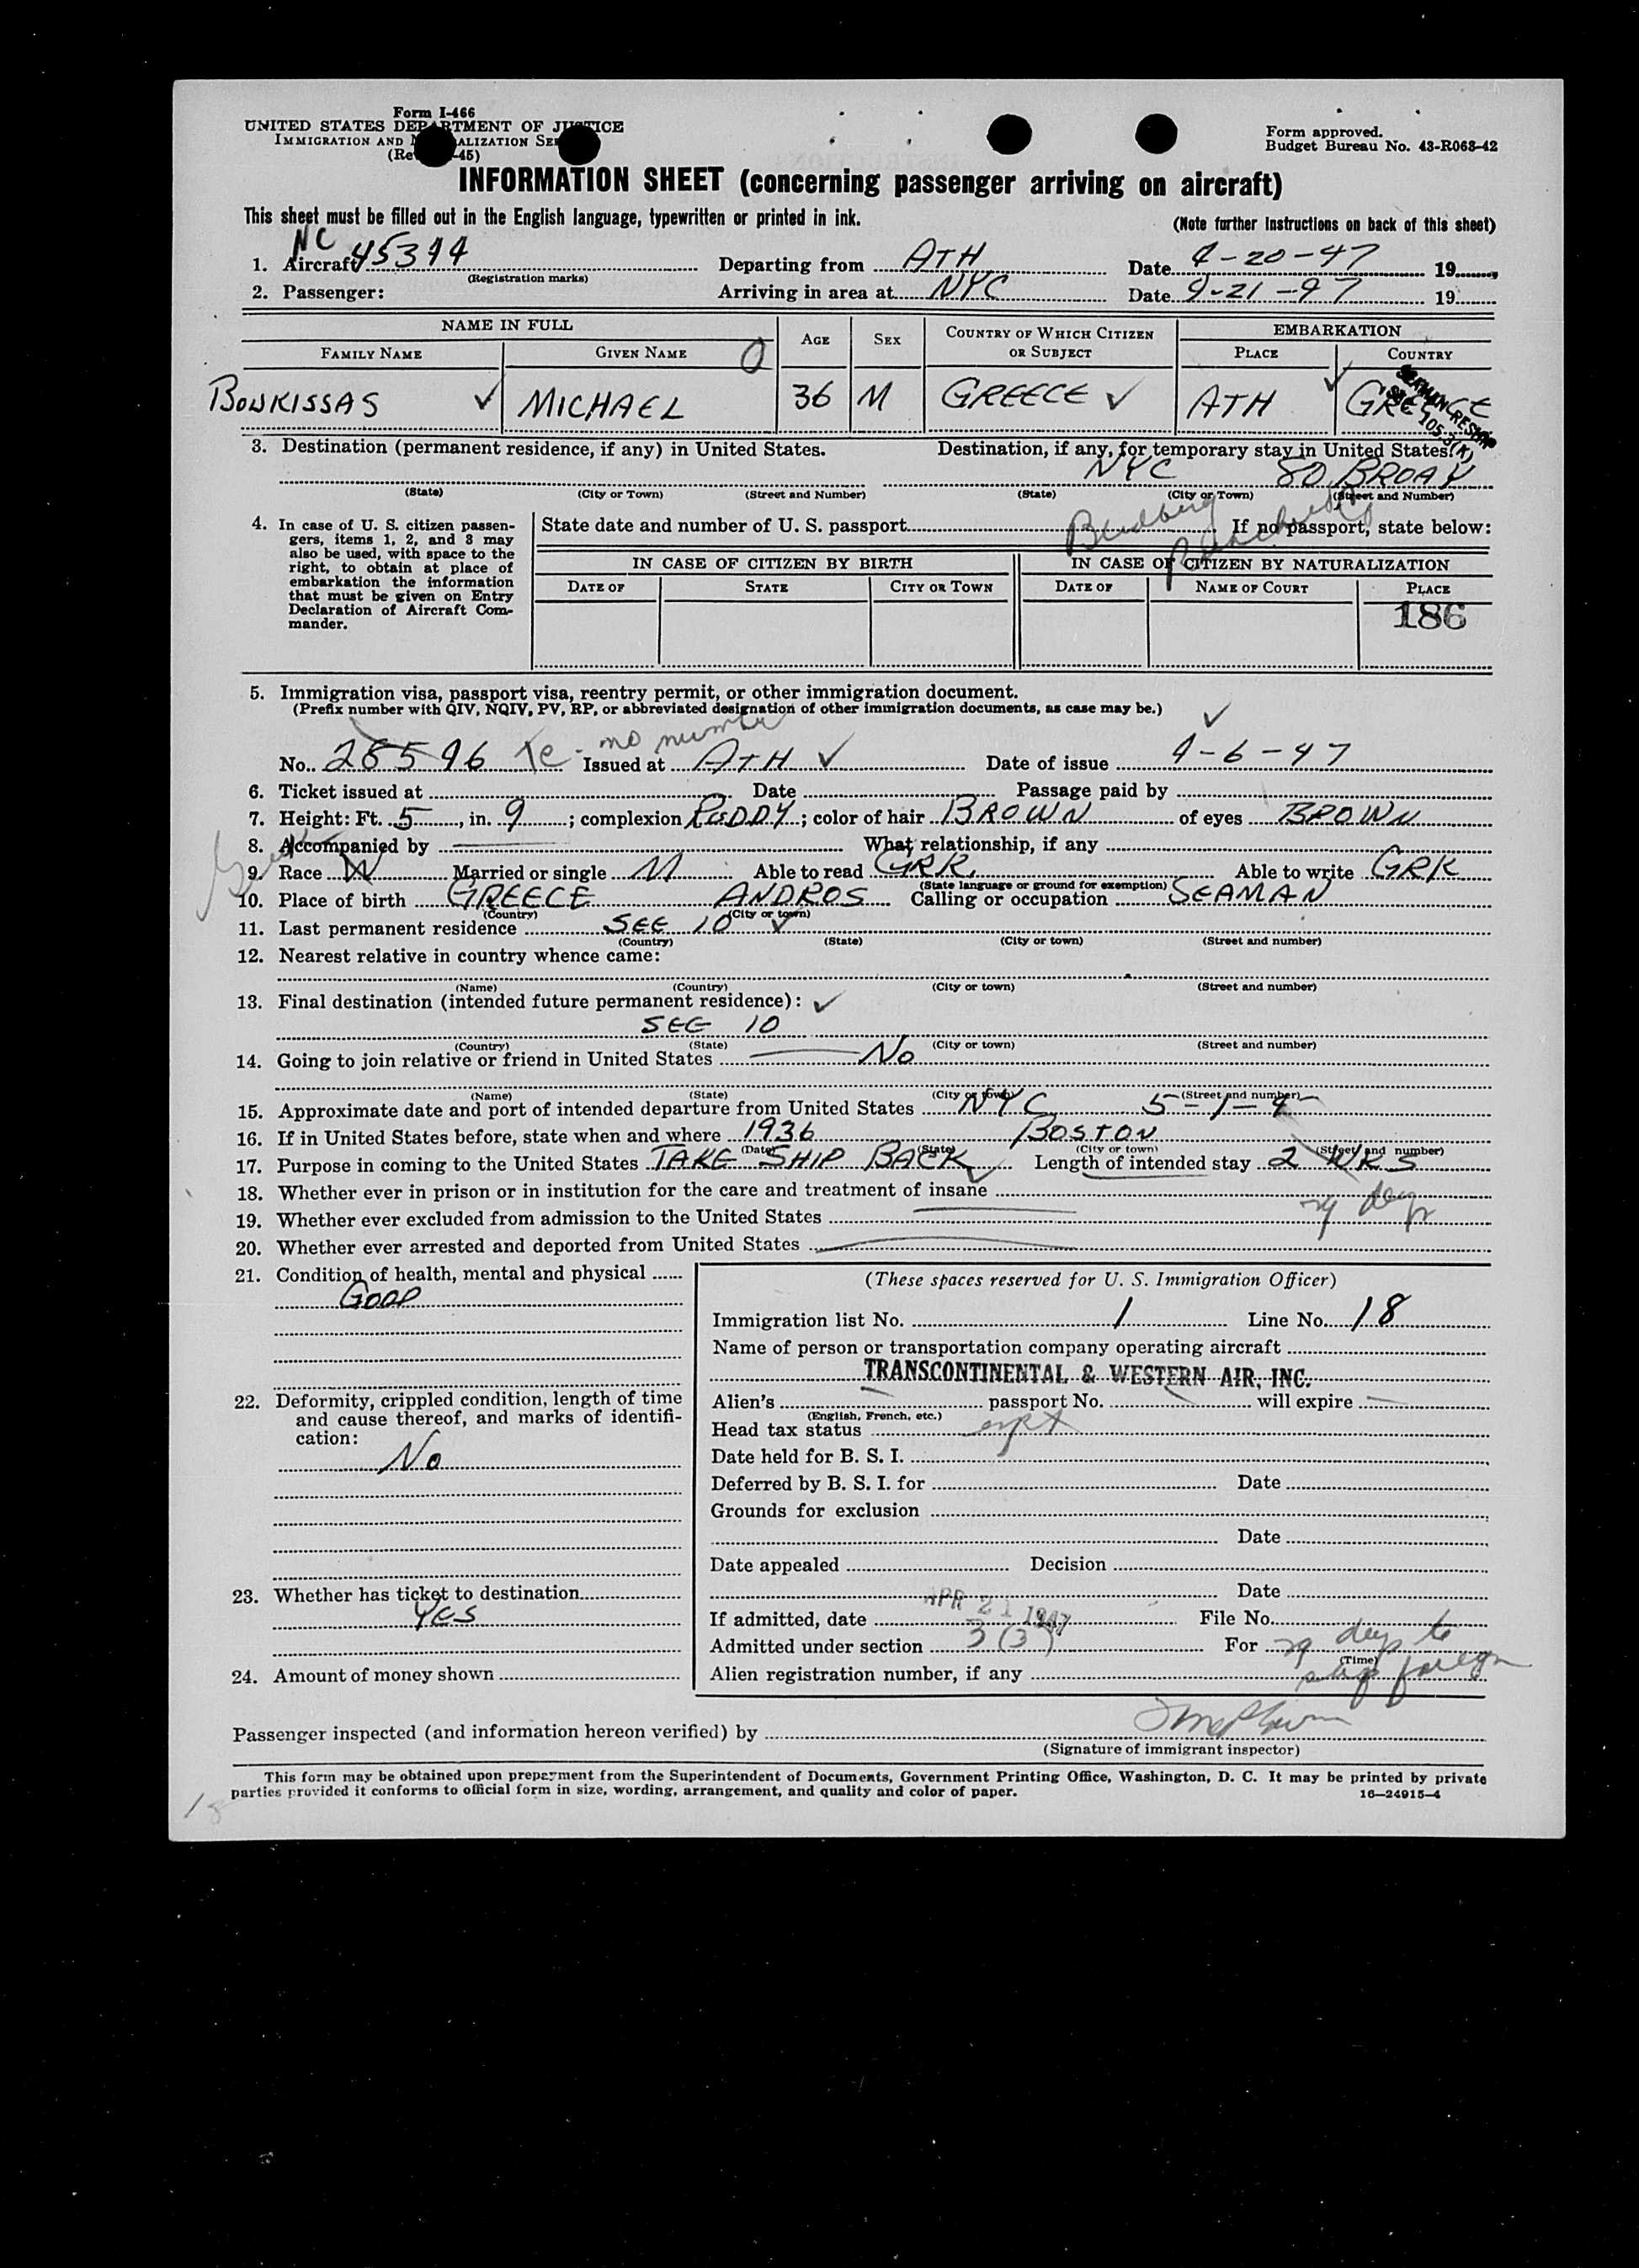 Form I-466
UNITED STATES DEPARTMENT OF JUSTICE
IMMIGRATION AND NATURALIZATION SERVICE
(Rev. -45)
Form approved.
Budget Bureau No. 43-R063-42
INFORMATION SHEET (concerning passenger arriving on aircraft)
This sheet must be filled out in the English language, typewritten or printed in ink.
(Note further instructions on back of this sheet)
NC
1. Aircraft 45344 Departing from ATH Date 4-20-47 19
(Registration marks)
2. Passenger: Arriving in area at NYC Date 4-21-47 19
NAME IN FULL AGE SEX COUNTRY OF WHICH CITIZEN OR SUBJECT EMBARKATION
FAMILY NAME GIVEN NAME PLACE COUNTRY
BOUKISSAS ✓ MICHAEL 36 M GREECE ✓ ATH ✓ GREECE
SEAMAN RESHIP
SEC 105.3(K)
3. Destination (permanent residence, if any) in United States. Destination, if any, for temporary stay in United States.
NYC 80 BROAY
(State) (City or Town) (Street and Number) (State) (City or Town) (Street and Number)
4. In case of U. S. citizen passengers, items 1, 2, and 3 may also be used, with space to the right, to obtain at place of embarkation the information that must be given on Entry Declaration of Aircraft Commander.
State date and number of U. S. passport If no passport, state below:
IN CASE OF CITIZEN BY BIRTH IN CASE OF CITIZEN BY NATURALIZATION
DATE OF STATE CITY OR TOWN DATE OF NAME OF COURT PLACE
186
5. Immigration visa, passport visa, reentry permit, or other immigration document.
(Prefix number with QIV, NQIV, PV, RP, or abbreviated designation of other immigration documents, as case may be.) ✓
no number
No. 28596 Issued at ATH ✓ Date of issue 4-6-47
6. Ticket issued at Date Passage paid by
7. Height: Ft. 5, in. 9; complexion RUDDY; color of hair BROWN of eyes BROWN
8. Accompanied by What relationship, if any
9. Race W Married or single M Able to read GRK Able to write GRK
(State language or ground for exemption)
10. Place of birth GREECE ANDROS Calling or occupation SEAMAN
(Country) (City or town)
11. Last permanent residence SEE 10 ✓
(Country) (State) (City or town) (Street and number)
12. Nearest relative in country whence came:
(Name) (Country) (City or town) (Street and number)
13. Final destination (intended future permanent residence): ✓
SEE 10
(Country) (State) (City or town) (Street and number)
14. Going to join relative or friend in United States No
(Name) (State) (City or town) (Street and number)
15. Approximate date and port of intended departure from United States NYC 5-1-4
16. If in United States before, state when and where 1936 BOSTON
(Date) (State) (City or town) (Street and number)
17. Purpose in coming to the United States TAKE SHIP BACK ✓ Length of intended stay 2 WKS
29 days
18. Whether ever in prison or in institution for the care and treatment of insane
19. Whether ever excluded from admission to the United States
20. Whether ever arrested and deported from United States
21. Condition of health, mental and physical
GOOD
22. Deformity, crippled condition, length of time and cause thereof, and marks of identification:
No
23. Whether has ticket to destination
YES
24. Amount of money shown
(These spaces reserved for U. S. Immigration Officer)
Immigration list No. 1 Line No. 18
Name of person or transportation company operating aircraft
TRANSCONTINENTAL & WESTERN AIR, INC.
Alien's passport No. will expire
(English, French, etc.)
Head tax status
Date held for B. S. I.
Deferred by B. S. I. for Date
Grounds for exclusion
Date
Date appealed Decision
Date
If admitted, date APR 21 1947 File No.
Admitted under section 3 (3) For 29 days to
(Time)
ship foreign
Alien registration number, if any
Passenger inspected (and information hereon verified) by
(Signature of immigrant inspector)
This form may be obtained upon prepayment from the Superintendent of Documents, Government Printing Office, Washington, D. C. It may be printed by private
parties provided it conforms to official form in size, wording, arrangement, and quality and color of paper.
16—24915-4
18